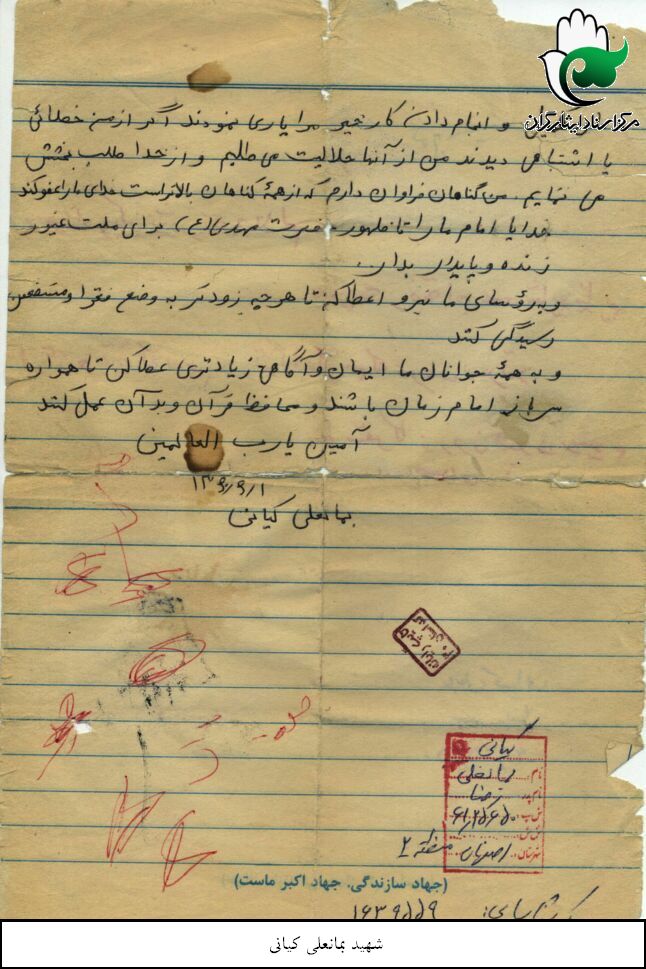 مرکز اسناد ایثارگران
و انجام دادن کار خیر مرا یاری نمودند اگر از من خطائی
یا اشتباهی دیدند من از آنها حلالیت می طلبم و از خدا طلب بخشش
می نمایم. من گناهان فراوان دارم که از همهٔ گناهان بالاتر است خدای ما را عفو کند
خدایا امام ما را تا ظهور حضرت مهدی (عج) برای ملت غیور
زنده و پایدار بدار.
و به رؤسای ما نیرو اعطا کن تا هر چه زودتر به وضع فقرا و مستضعفین
رسیدگی کنند
و به همهٔ جوانان ما ایمان و آگاهی زیادتری عطا کن تا همواره
سرباز امام زمان باشند و محافظ قرآن و بدآن عمل کنند
آمین یا رب العالمین
بمانعلی کیانی
کیانی
نام: بمانعلی
نام پدر: رضا
شهرستان: اصفهان منطقه ۲
(جهاد سازندگی. جهاد اکبر ماست)
شهید بمانعلی کیانی